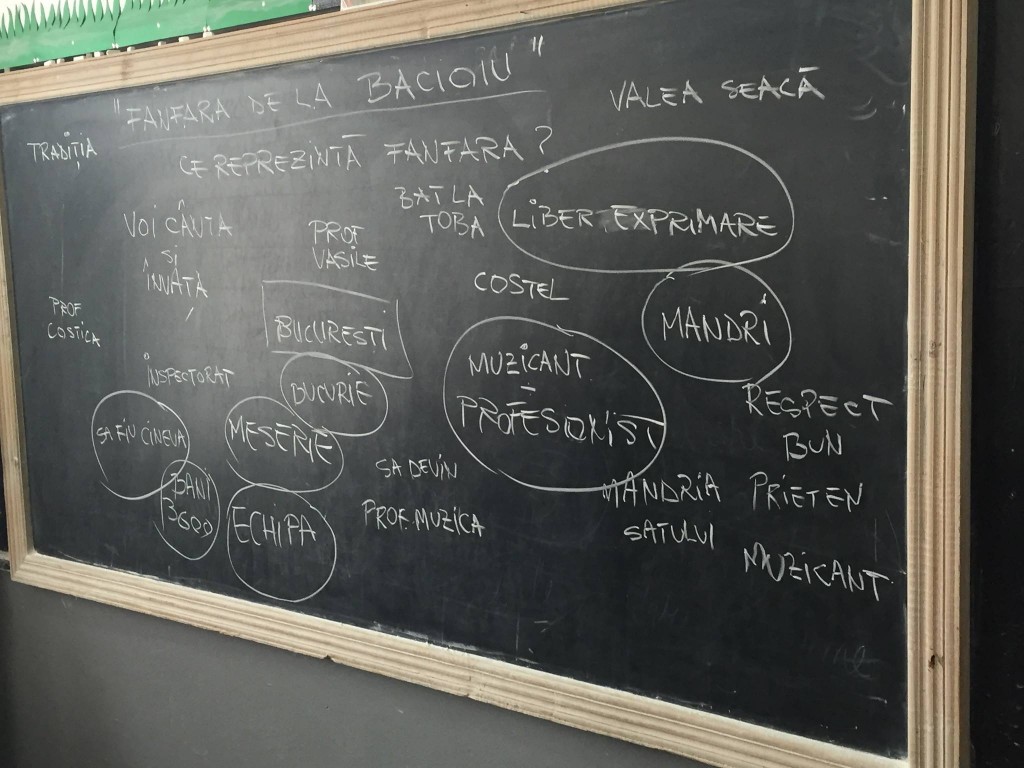 "FANFARA DE LA BACIOIU"
VALEA SEACĂ
TRADIȚIA
CE REPREZINTĂ FANFARA?
BAT LA
TOBA
LIBER EXPRIMARE
VOI CÂNTA
ȘI
ÎNVĂȚA
PROF
VASILE
COSTEL
MANDRI
PROF
COSTICA
BUCURESTI
MUZICANT
-
PROFESIONIST
INSPECTORAT
BUCURIE
RESPECT
BUN
PRIETEN
MUZICANT
SA FIU CINEVA
MESERIE
SA DEVIN
PROF. MUZICA
MANDRIA
SATULUI
BANI
ECHIPA